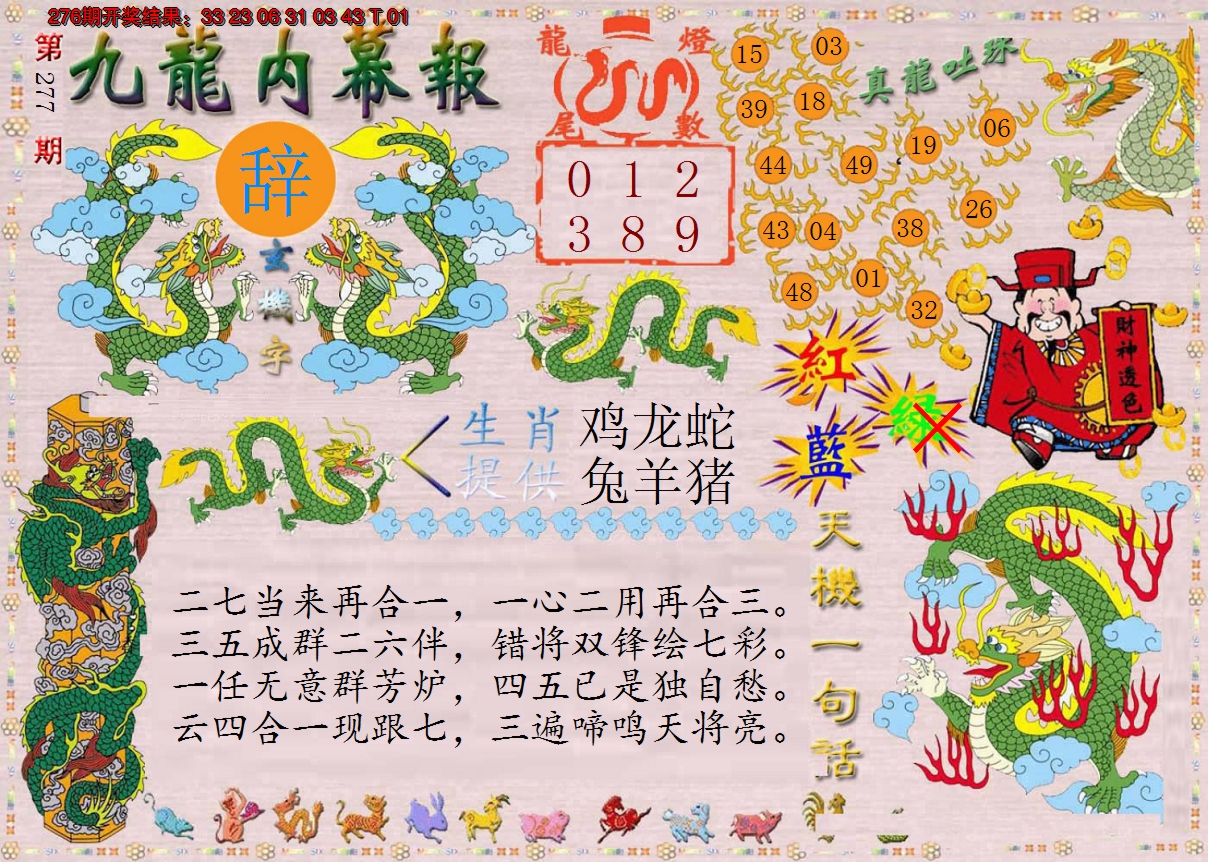 276期开奖结果：33 23 06 31 03 43 T 01
第277期
九龍内幕報
辞
玄機字
龍燈尾數
0 1 2
3 8 9
真龍吐珠
15
03
39
18
19
06
44
49
26
43
04
38
48
01
32
財神透色
紅
綠
藍
生肖 鸡龙蛇
提供 兔羊猪
天機一句話
二七当来再合一，一心二用再合三。
三五成群二六伴，错将双锋绘七彩。
一任无意群芳炉，四五已是独自愁。
云四合一现跟七，三遍啼鸣天将亮。